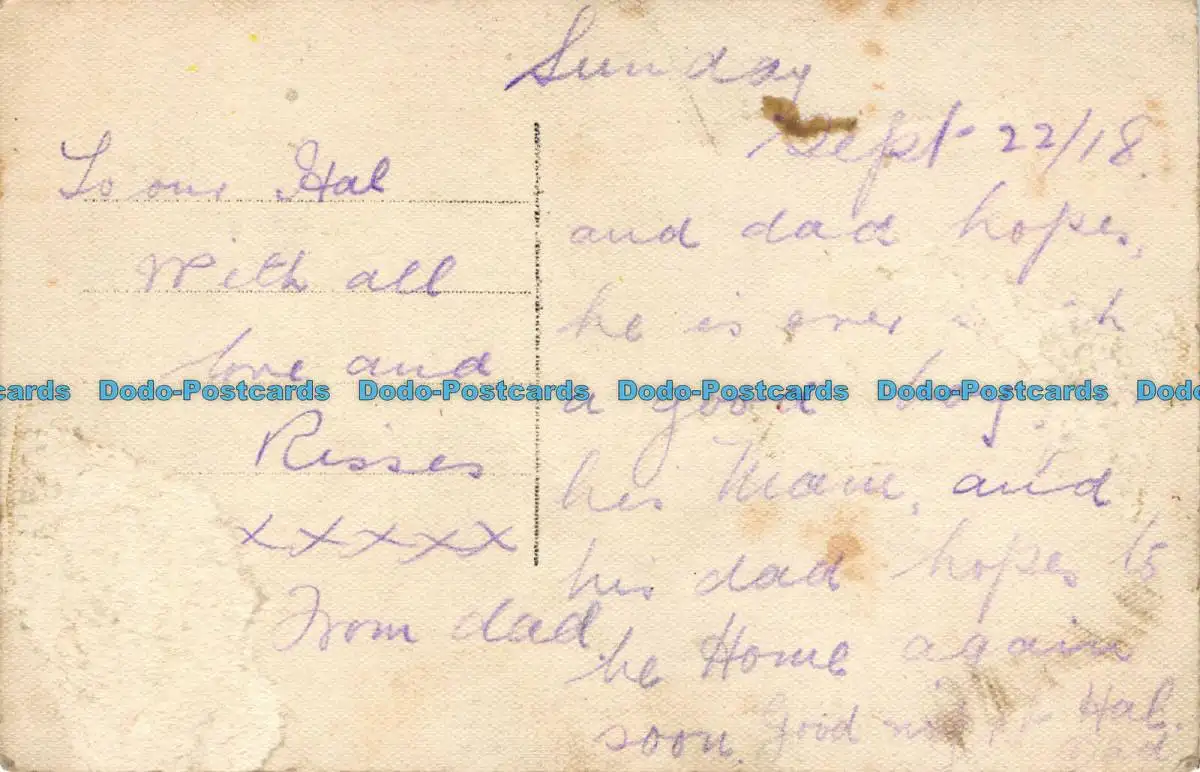 Sunday
Sept 22/18
To our Hal
With all
love and
Kisses
x x x x x
From dad
and dad hopes,
he is ever
a good boy.
his Mam, and
his dad hopes to
be Home again
soon. Good night Hal.
dad
cards Dodo-Postcards Dodo-Postcards Dodo-Postcards Dodo-Postcards Dodo